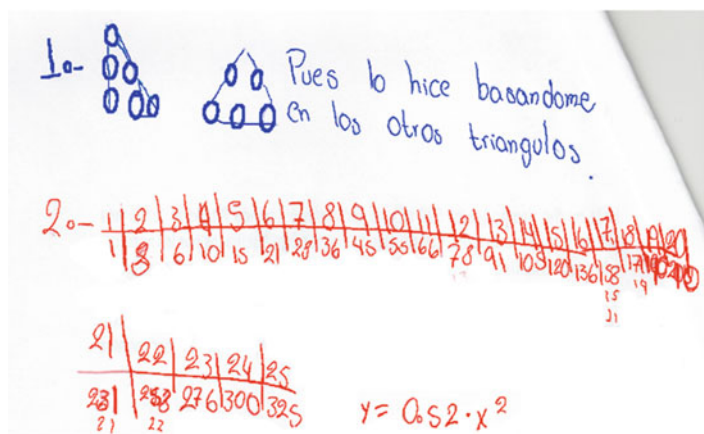 1.- Pues lo hice basandome
en los otros triangulos.
2.- 1 2 3 4 5 6 7 8 9 10 11 12 13 14 15 16 17 18 19 20
1 3 6 10 15 21 28 36 45 55 66 78 91 105 120 136
21 22 23 24 25
231 276 300 325
21 22
y = 0.52 · x²